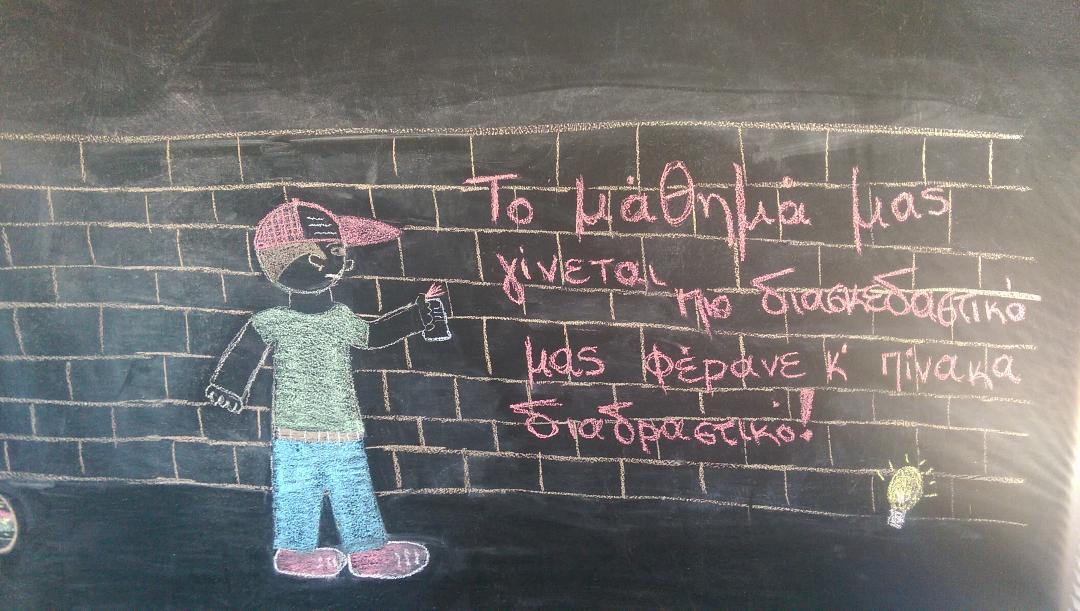 Το μάθημά μας
γίνεται πιο διασκεδαστικό
μας φέρανε κ' πίνακα
διαδραστικό!